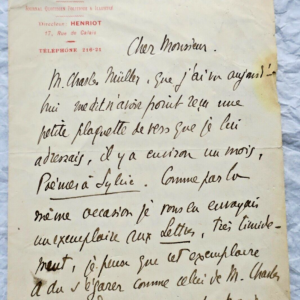 Directeur: HENRIOT
17, Rue de Calais
TÉLÉPHONE
Cher Monsieur.
M. Charles Müller, que j'ai vu aujourd'
hui me dit n'avoir point reçu une
petite plaquette de vers que je lui
adressais, il y a environ un mois,
Poèmes à Sylvie. Comme par la
même occasion je vous en envoyais
un exemplaire aux Lettres, très timide-
ment, je pense que cet exemplaire
a du s'égarer comme celui de M. Charles